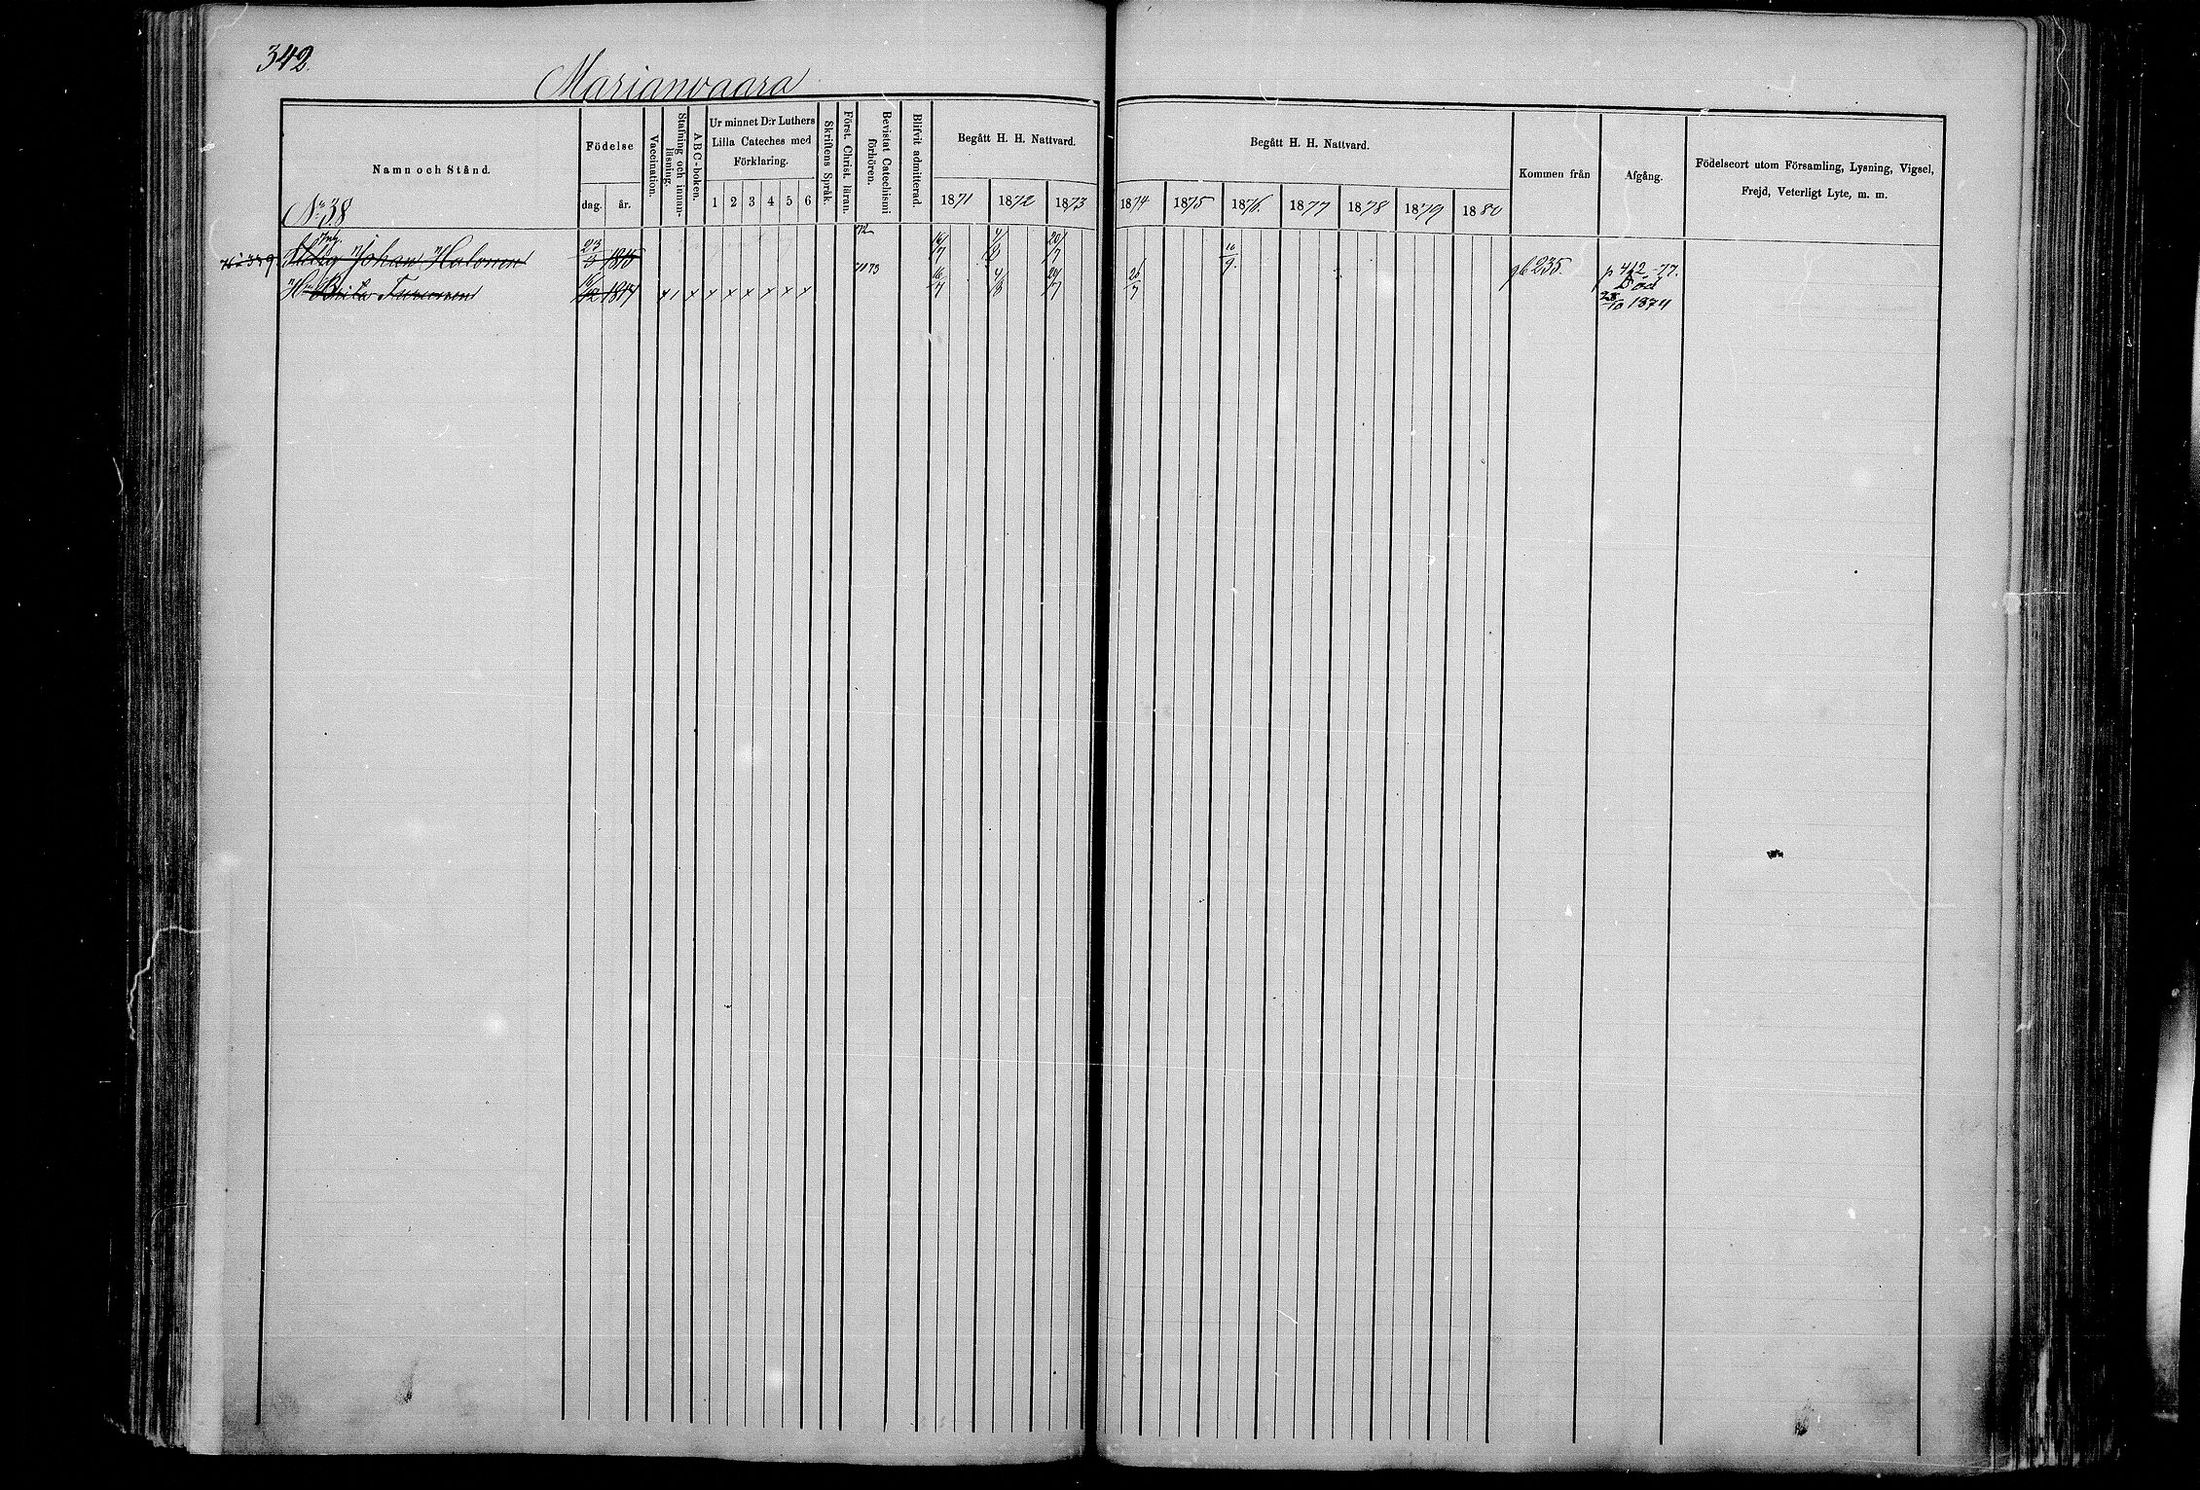 342.
Marianvaara
Namn och Stånd.
Födelse
dag. år.
Vaccination.
Stafning och innan-läsning.
A B C-boken.
Ur minnet D:r Luthers
Lilla Cateches med
Förklaring.
1 2 3 4 5 6
Skriftens Språk.
Först. Christ. läran.
Bevistat Catechismi förhören.
Blifvit admitterad
Begått H. H. Nattvard.
1871 1872 1873
Begått H. H. Nattvard.
1874 1875 1876 1877 1878 1879 1880
Kommen från
Afgång.
Födelseort utom Församling, Lysning, Vigsel,
Frejd, Veterligt Lyte, m. m.
No 38
Johan Halonen 23/3 1815 72 16/7 4/8 20/7 10/9. 235. p 412 -77.
Hu Brita 1817 x 1 x x x x x x x 71 73 16/7 4/8 20/7 26/7 Död
28/10 1874